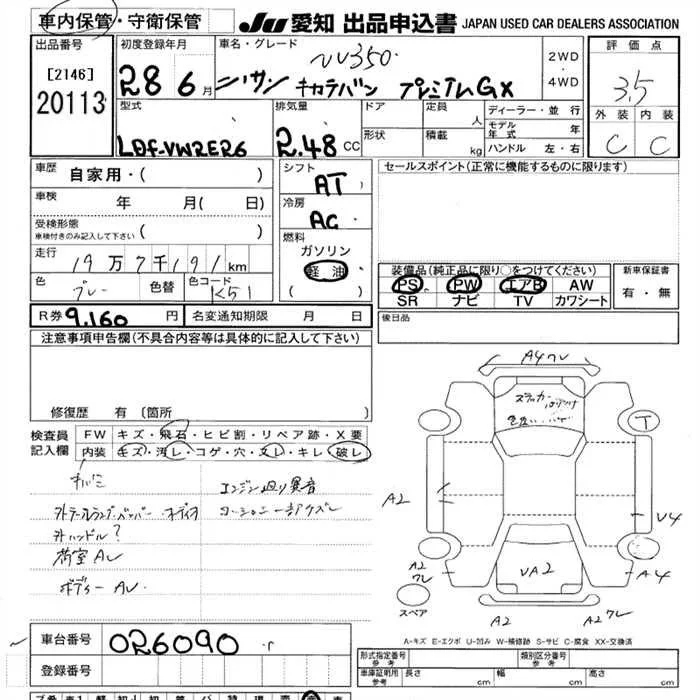 車内保管・守衛保管
JU 愛知 出品申込書 JAPAN USED CAR DEALERS ASSOCIATION
出品番号
[2146]
20113
初度登録年月
28 6月
車名・グレード
NV350
ニッサン キャラバン プレミアムGX
2WD
・
4WD
評価点
3.5
外装 内装
C C
型式
LDF-VW2E26
排気量
2.48 CC
ドア
形状
定員 人
積載 kg
ディーラー・並行
モデル年式 年
ハンドル 左・右
車歴
自家用・( )
車検
年 月( 日)
受検形態
車検付きのみ記入して下さい ( )
走行
19万7千191km
色
グレー
色替
色コード
K51
シフト
AT
冷房
AC
燃料
ガソリン
軽油
( )
セールスポイント(正常に機能するものに限ります)
装備品(純正品に限り○をつけてください)
PS PW エアB AW
SR ナビ TV カワシート
新車保証書
有・無
R券 9,160 円
名変通知期限 月 日
後日品
注意事項申告欄(不具合内容等は具体的に記入して下さい)
修復歴 有(箇所 )
検査員
記入欄
FW キズ・飛石・ヒビ割・リペア跡・X要
内装 キズ・汚レ・コゲ・穴・スレ・キレ・破レ
エンジン廻り異音
外ハンドル?
荷室AU
ボディーAU
A4
ステッカー
T
A2
U4
A2
A4
UA2
スペア
A2
A2
A-キズ E-エクボ U-凹み W-補修跡 S-サビ C-腐食 XX-交換済
車台番号
026090
登録番号
形式指定番号
参考
類別区分番号
参考
車庫証明用
参考
長さ cm
幅 cm
高さ cm